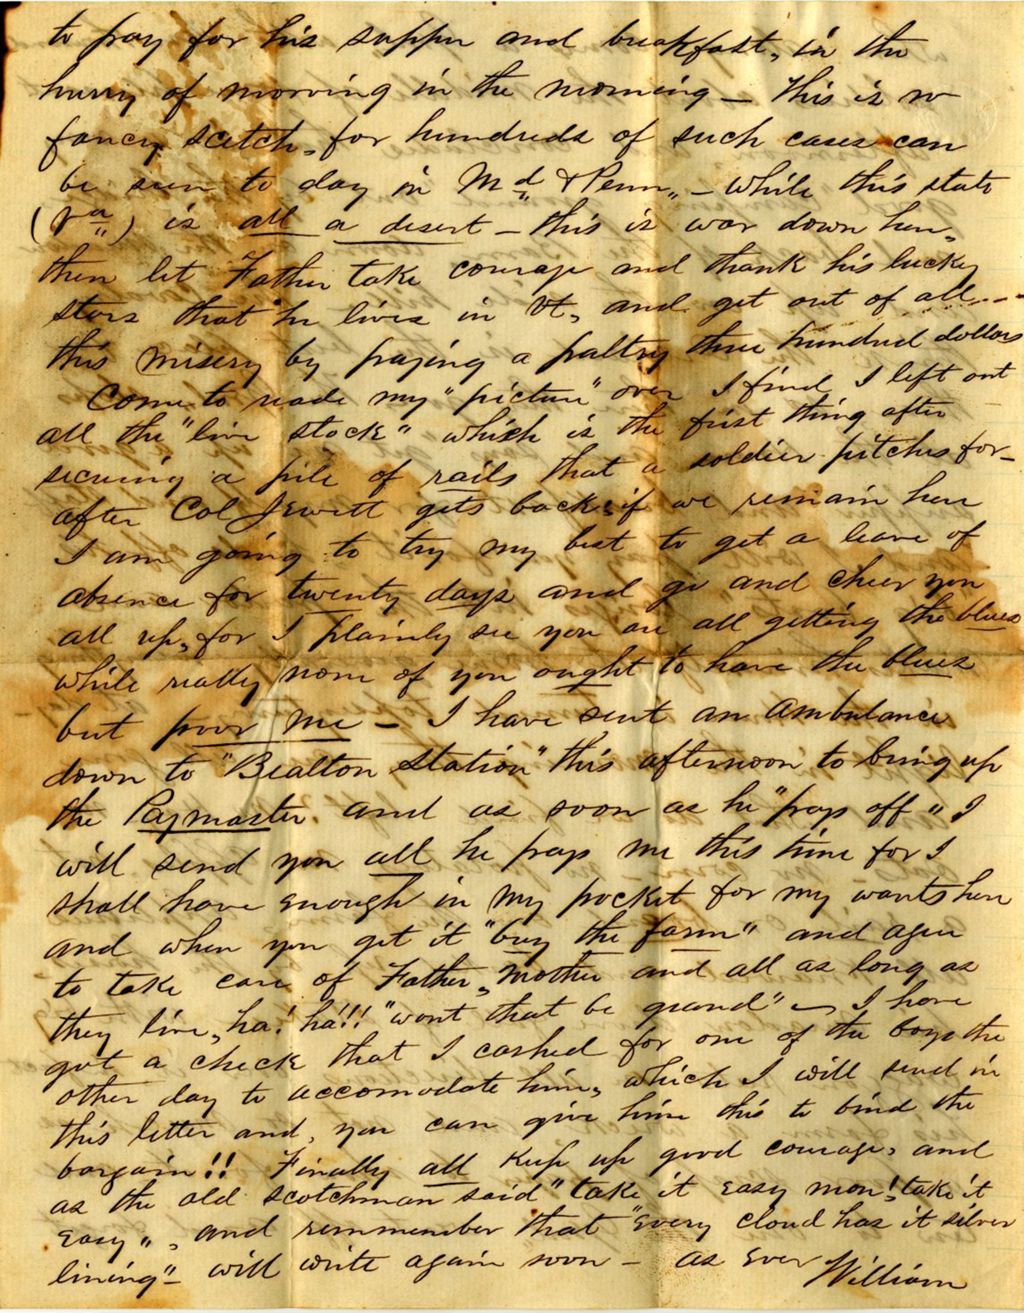 to pay for his supper and breakfast, in the
hurry of moving in the morning — This is no
fancy scetch, for hundreds of such cases can
be seen to day in Md & Penn, — while this state
(Va) is all a desert — this is war down here,
then let Father take courage and thank his lucky
stars that he lives in Vt, and get out of all
this misery by paying a paltry three hundred dollars
Come to reade my "picture" over I find I left out
all the "live stock" which is the first thing after
securing a pile of rails that a soldier pitches for —
after Col Jewett gets back, if we remain here
I am going to try my best to get a leave of
absence for twenty days and go and cheer you
all up, for I plainly see you are all getting the blues
while really none of you ought to have the blues
but poor me — I have sent an ambulance
down to "Bealton Station" this afternoon to bring up
the Paymaster and as soon as he "pays off" I
will send you all he pays me this time for I
shall have enough in my pocket for my wants here
and when you get it "buy the farm" and agree
to take care of Father, Mother and all as long as
they live, ha! ha!!! "wont that be grand" — I have
got a check that I cashed for one of the boys the
other day to accomodate him, which I will send in
this letter and, you can give him this to bind the
bargain!! Finally all keep up good courage, and
as the old scotchman said "take it easy mon! take it
easy", and remmember that "every cloud has it silver
lining" — will write again soon — as ever William